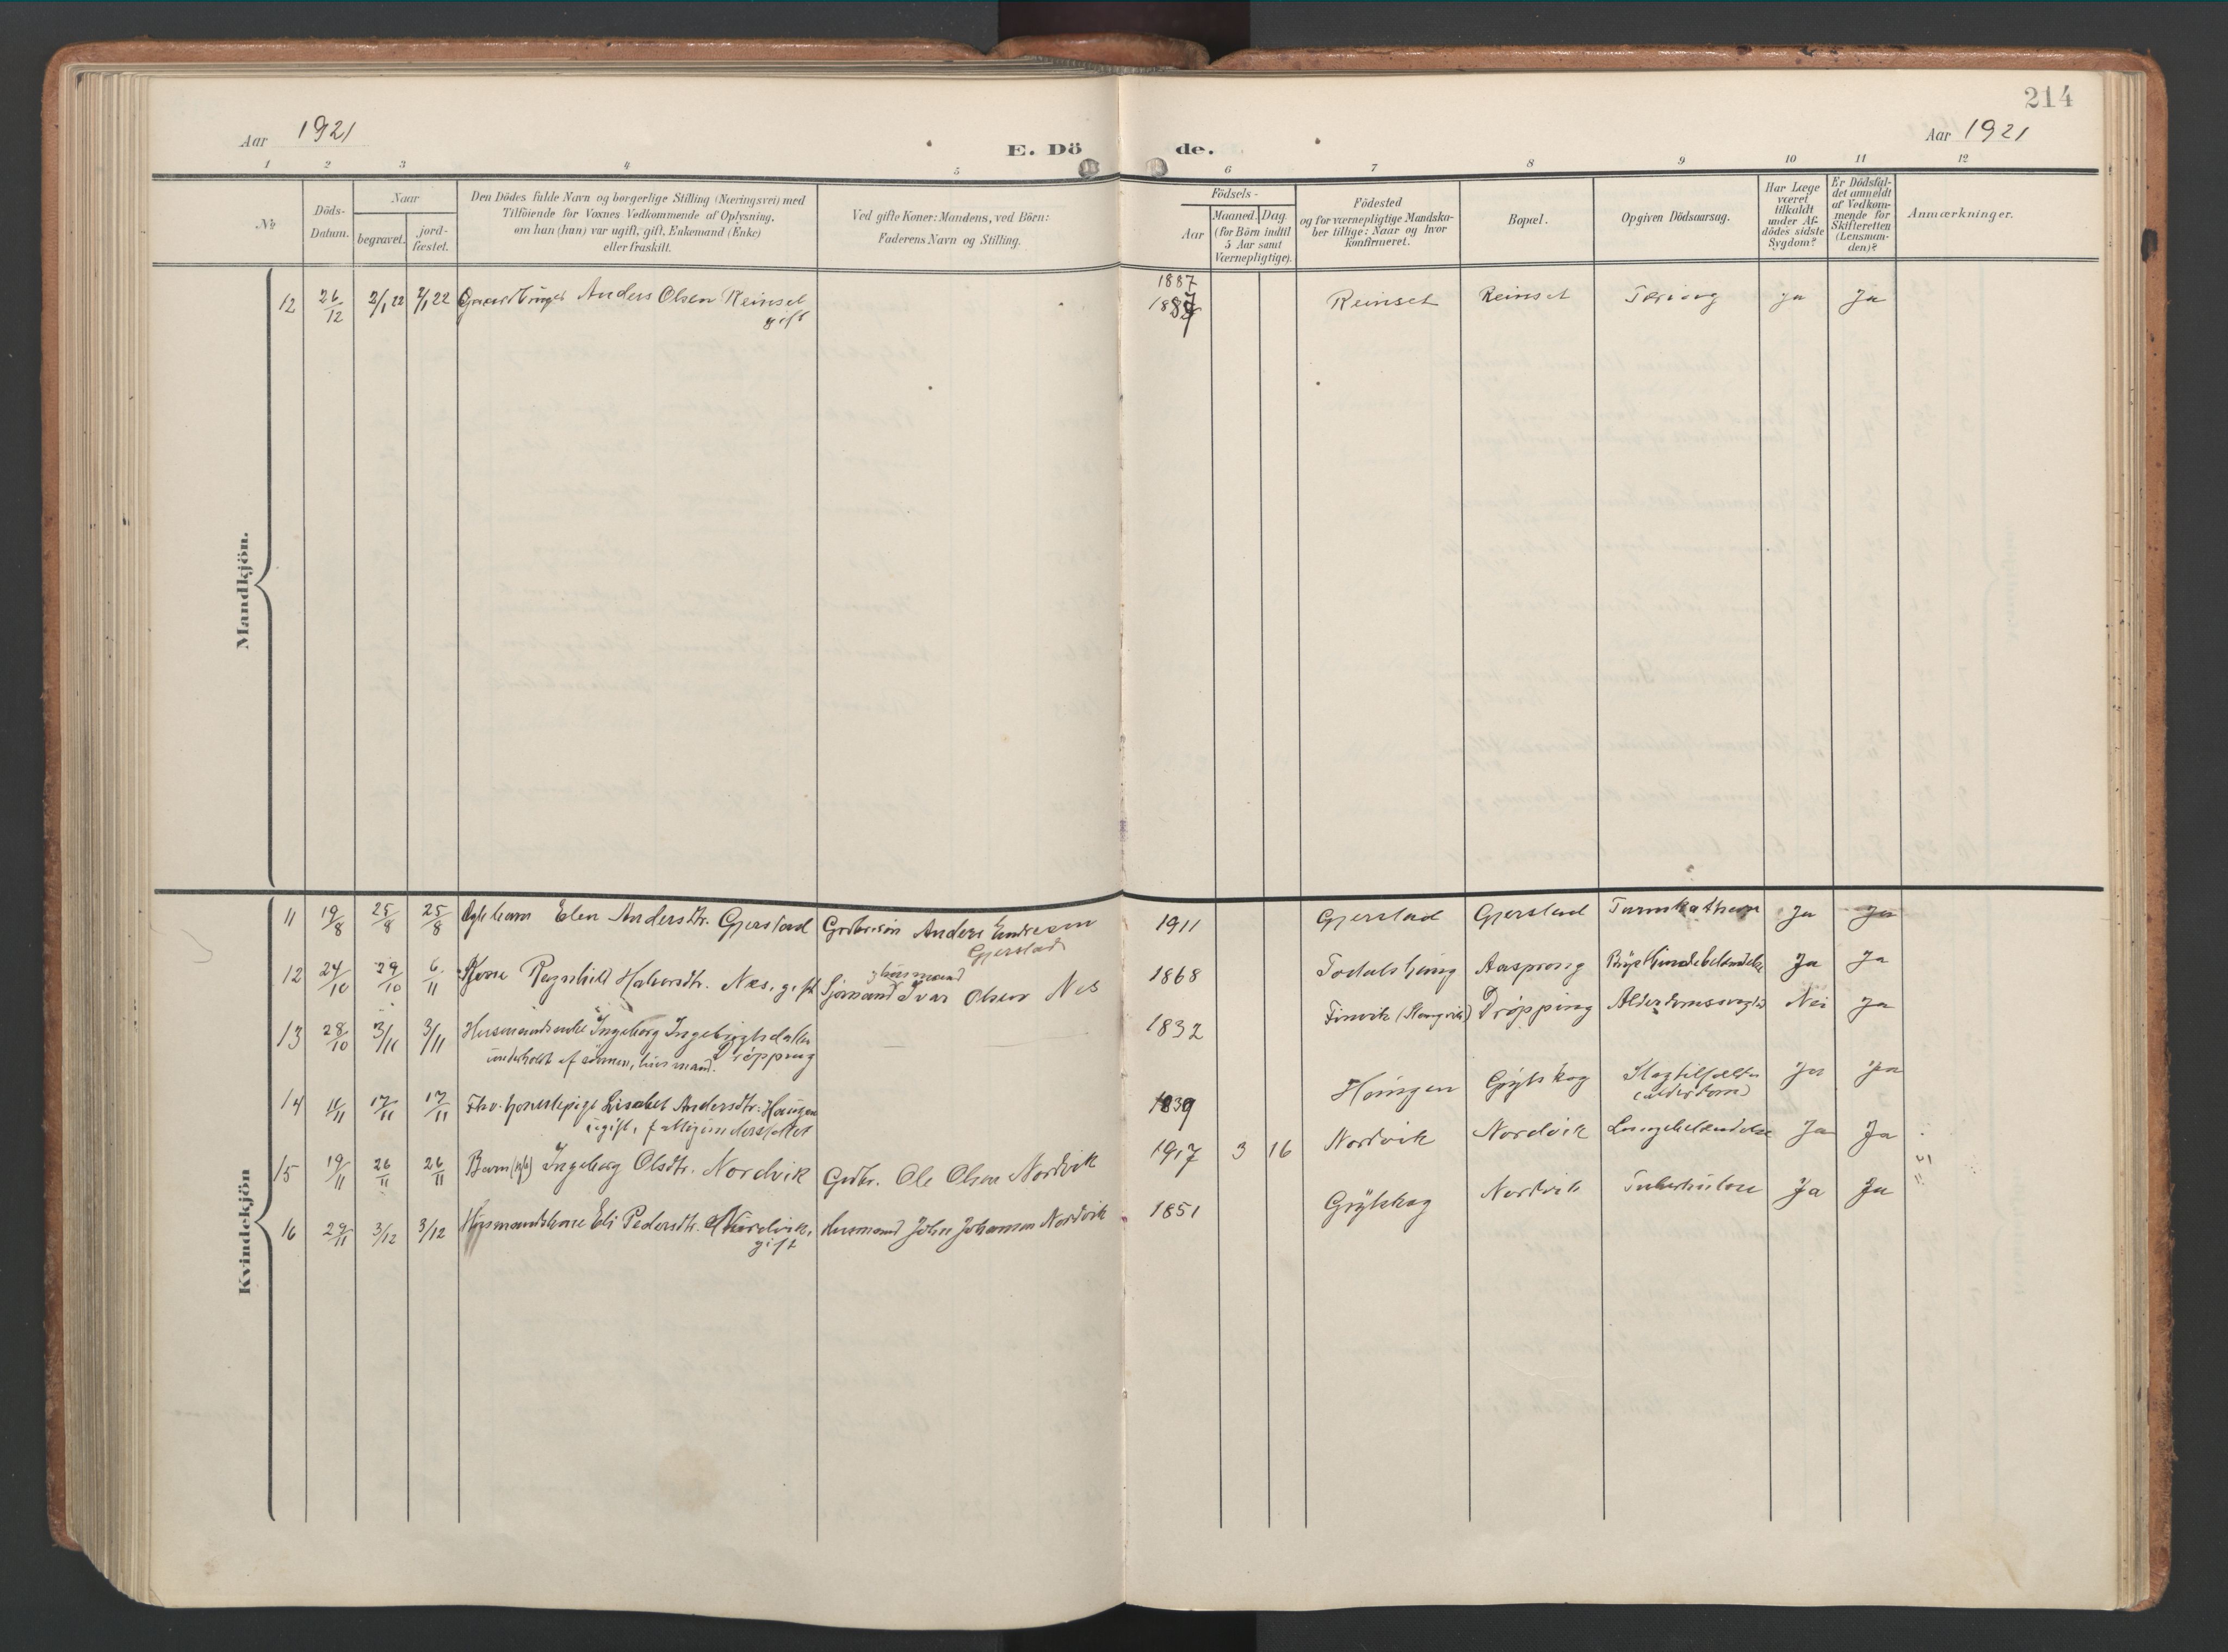 214
Aar 1921
E. Dö de.
Aar 1921
1 2 3 4 5 6 7 8 9 10 11 12
No
Döds-Datum.
Naar
begravet.
jord-fæstet.
Den Dödes fulde Navn og borgerlige Stilling (Næringsvei) med
Tilföiende for Voxnes Vedkommende af Oplysning,
om han (hun) var ugift, gift, Enkemand (Enke)
eller fraskilt.
Ved gifte Koner: Mandens, ved Börn:
Faderens Navn og Stilling.
Födsels-
Aar
Maaned. Dag.
(for Börn indtil
5 Aar samt
Værnepligtige).
Födested
og for værnepligtige Mandska-
ber tillige: Naar og hvor
konfirmeret.
Bopæl.
Opgiven Dödsaarsag.
Har Læge
været
tilkaldt
under Af-
dödes sidste
Sygdom?
Er Dödsfal-
det anmeldt
af Vedkom-
mende for
Skifteretten
(Lensman-
den)?
Anmærkninger.
Mandkjön.
1887
12 26/12 2/1 22 2/1 22 Anders Olsen Reinset 1887 Reinset Reinset Tæring ja Ja
gift
Kvindekjön
11 19/8 25/8 25/8 Elen Andersdtr. Gjerstad Anders Gjerstad 1911 Gjerstad Gjerstad Ja Ja
12 24/10 29/10 6/11 Kone Ragnhild Halvorsdtr. Næs, gift Sjømand husmand Ivar Olsen Nes 1868 Aasprong Ja Ja
13 28/10 3/11 3/11 Husmandsenke Ingeborg Dröpping 1832 Dröpping Nei Ja
underholdt af sönnen, husmand.
14 11/11 17/11 17/11 Lisabet Andersdtr. Haugen 1839 Haugen Grytskog (alderdom) Ja Ja
ugift, fattigunderstøttet
15 19/11 26/11 26/11 Barn Ingeborg Olsdtr. Nordvik Grdbr. Ole Olsen Nordvik 1917 3 16 Nordvik Nordvik Lungebetændelse Ja Ja
16 29/11 3/12 3/12 Husmandskone Eli Pedersdtr. Nordvik, Husmand John Johansen Nordvik 1851 Grytskog Nordvik Tuberkulose Ja Ja
gift